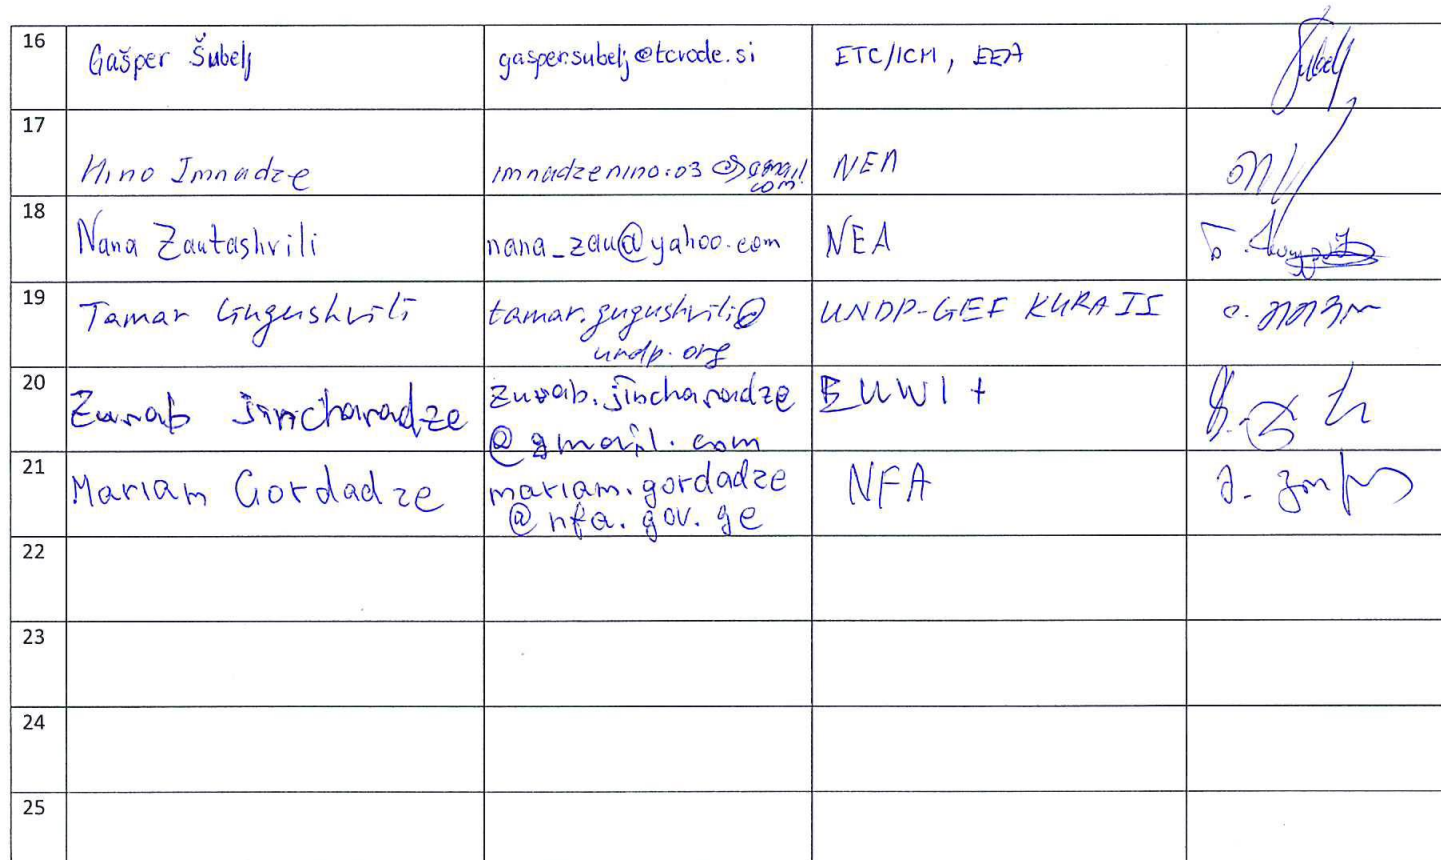 16 Gašper Šubelj gasper.subelj@tcvode.si ETC/ICM, EEA
17
Nino Imnadze imnadzenino.03@gmail.com NEA
18
Nana Zautashvili nana_zau@yahoo.com NEA
19
Tamar Gugushvili tamar.gugushvili@ UNDP-GEF KURA II
undp.org
20
Zurab Jincharadze zurab.jincharadze EUWI+
@gmail.com
21
Mariam Gordadze mariam.gordadze NFA
@nfa.gov.ge
22
23
24
25